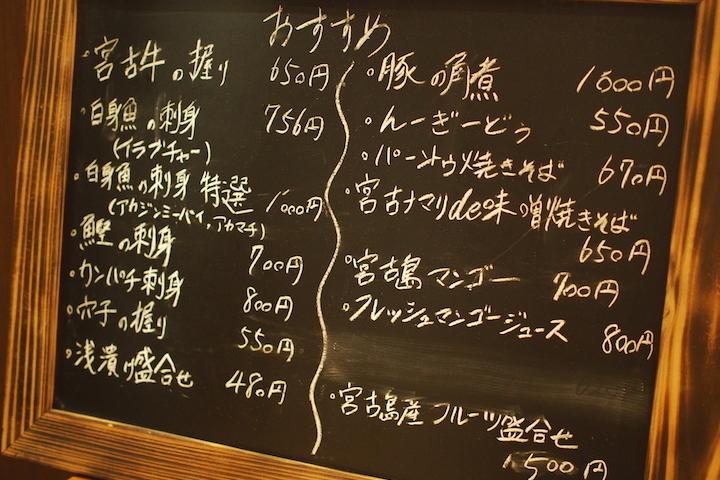 おすすめ
・宮古牛の握り 650円
・白身魚の刺身 756円
(イラブチャー)
・白身魚の刺身 特選
(アカジンミーバイ,アカマチ) 1000円
・鰹の刺身 700円
・カンパチ刺身 800円
・穴子の握り 550円
・浅漬け盛合せ 480円
・豚の角煮 1000円
・んーぎーどぅ 550円
・パーントゥ焼きそば 670円
・宮古ナマリde味噌焼きそば
650円
・宮古島マンゴー 700円
・フレッシュマンゴージュース 800円
・宮古島産フルーツ盛合せ
1500円